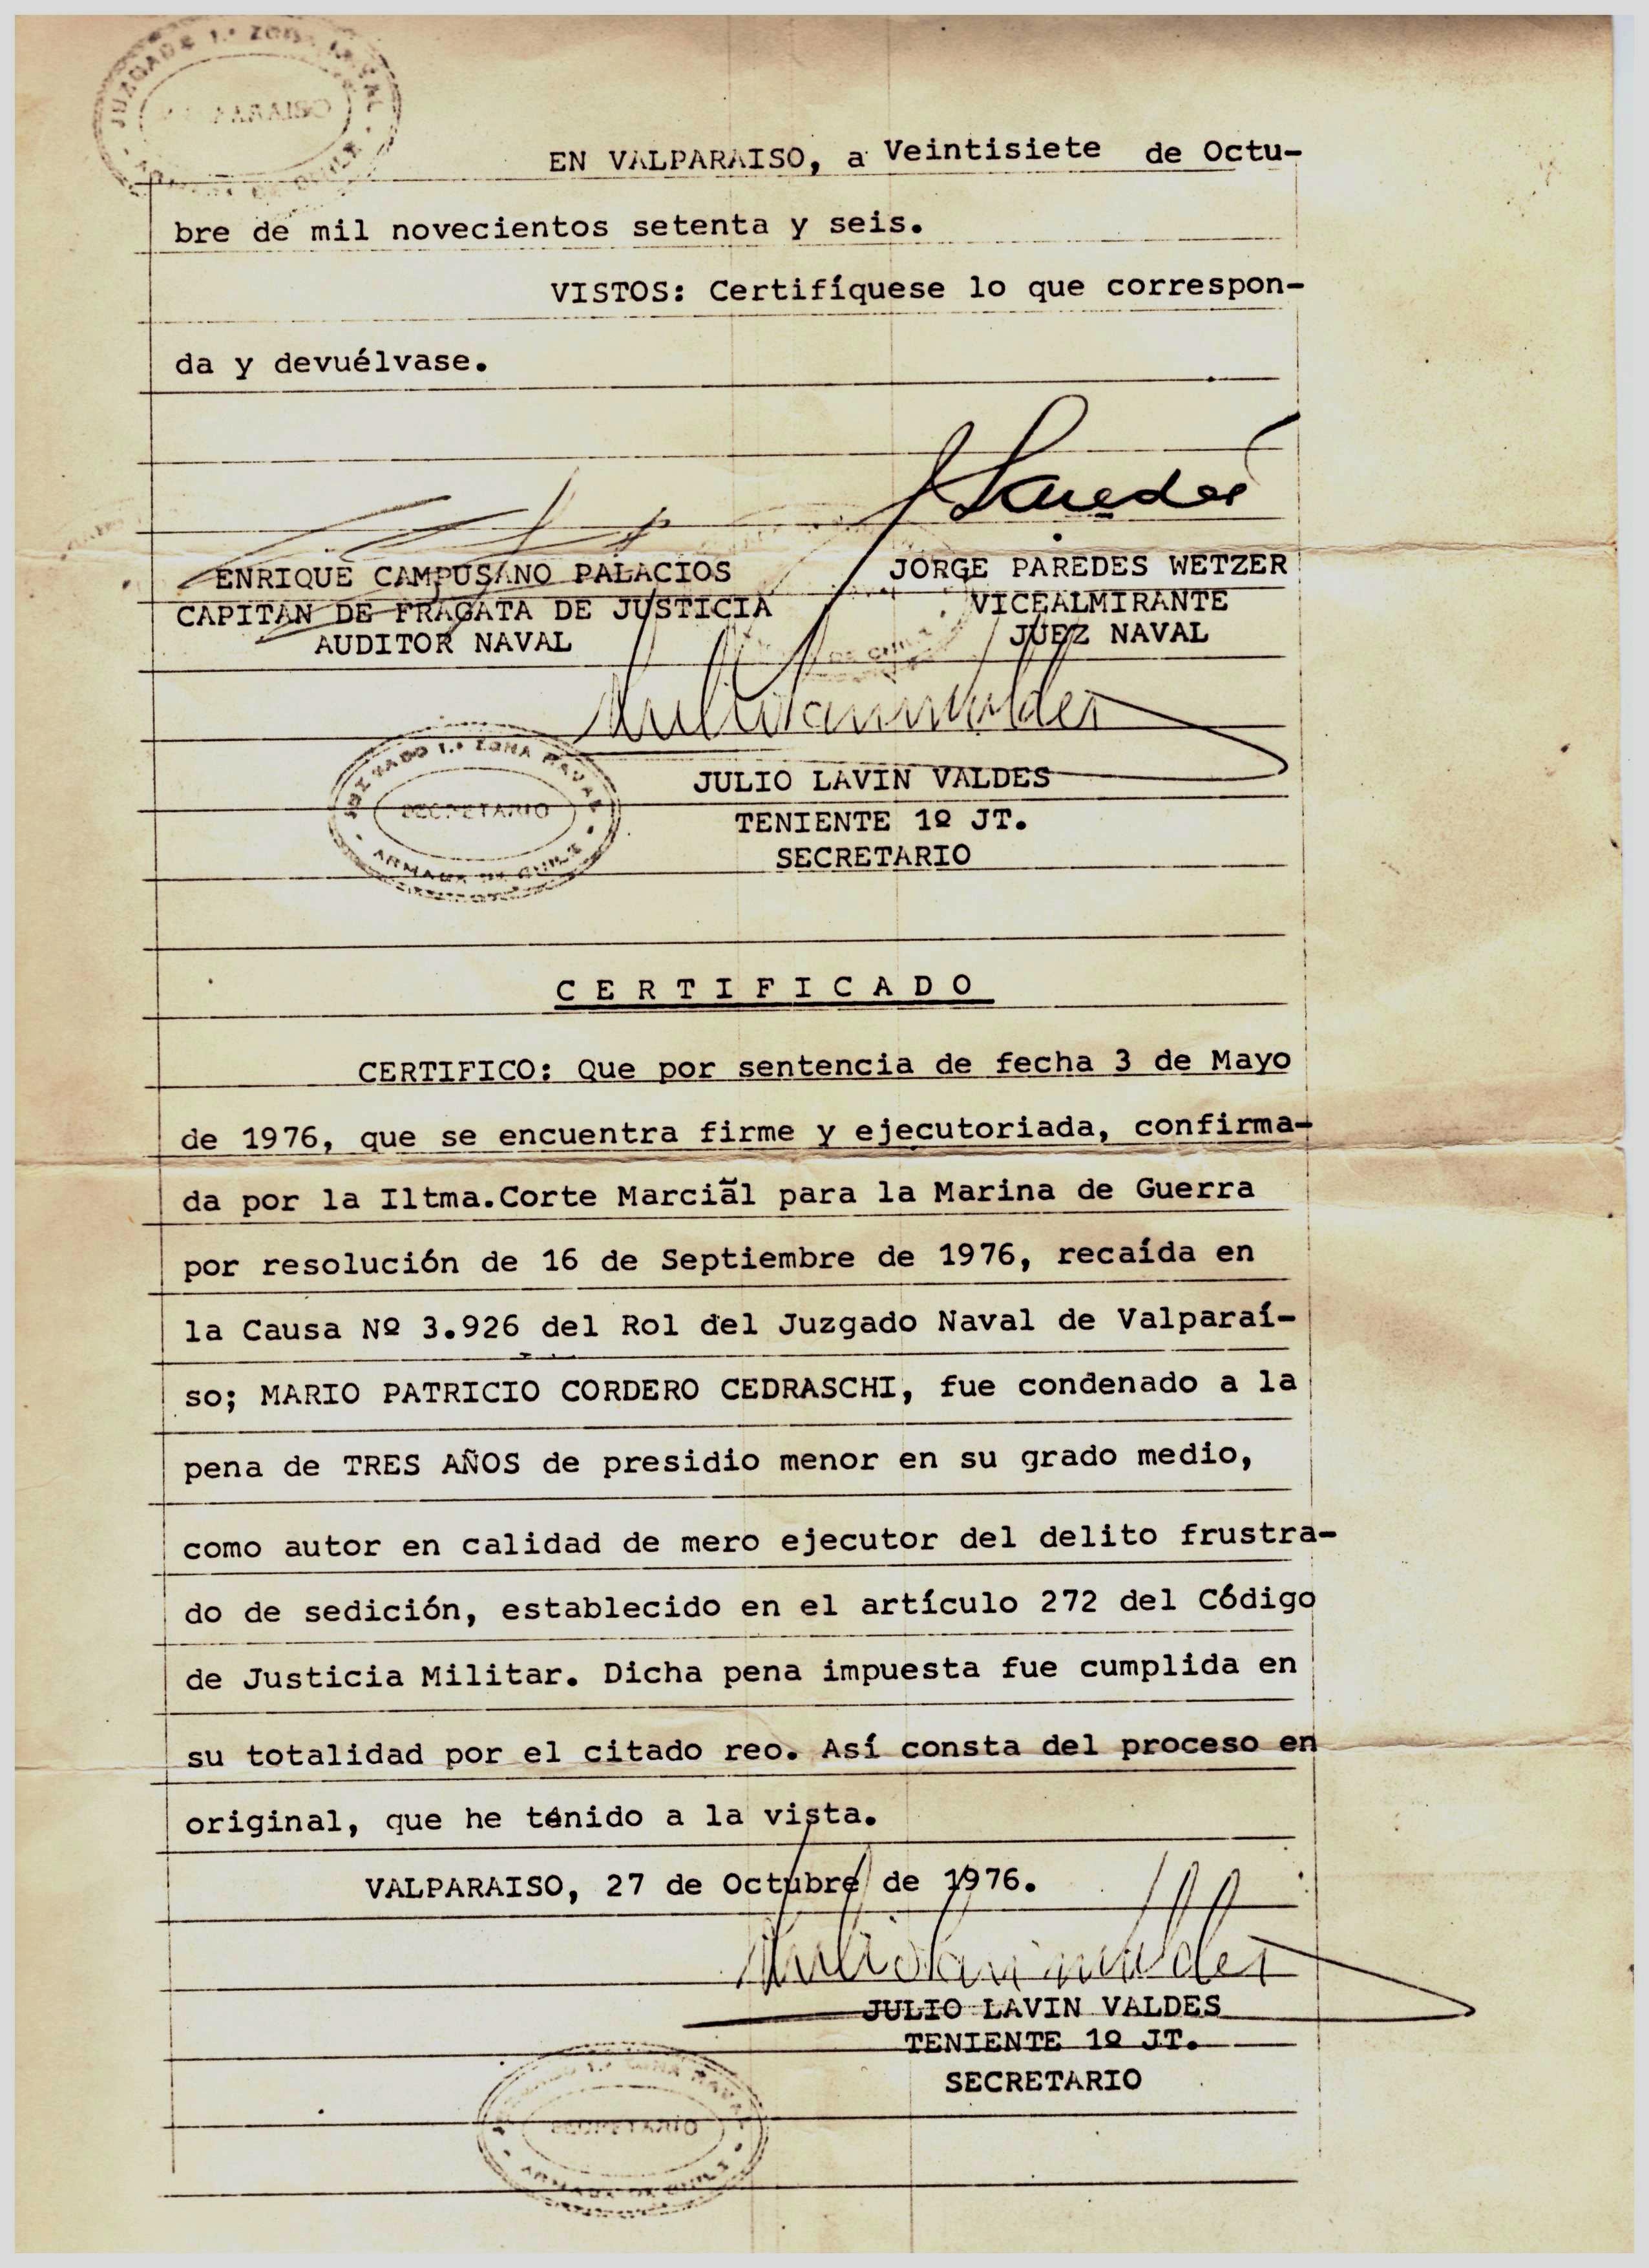 JUZGADO 1.ª ZONA NAVAL
VALPARAISO
ARMADA DE CHILE
EN VALPARAISO, a Veintisiete de Octu-
bre de mil novecientos setenta y seis.
VISTOS: Certifíquese lo que correspon-
da y devuélvase.
ENRIQUE CAMPUSANO PALACIOS
CAPITAN DE FRAGATA DE JUSTICIA
AUDITOR NAVAL
JORGE PAREDES WETZER
VICEALMIRANTE
JUEZ NAVAL
JUZGADO 1.ª ZONA NAVAL
SECRETARIO
ARMADA DE CHILE
JULIO LAVIN VALDES
TENIENTE 1º JT.
SECRETARIO
C E R T I F I C A D O
CERTIFICO: Que por sentencia de fecha 3 de Mayo
de 1976, que se encuentra firme y ejecutoriada, confirma-
da por la Iltma.Corte Marcial para la Marina de Guerra
por resolución de 16 de Septiembre de 1976, recaída en
la Causa Nº 3.926 del Rol del Juzgado Naval de Valparaí-
so; MARIO PATRICIO CORDERO CEDRASCHI, fue condenado a la
pena de TRES AÑOS de presidio menor en su grado medio,
como autor en calidad de mero ejecutor del delito frustra-
do de sedición, establecido en el artículo 272 del Código
de Justicia Militar. Dicha pena impuesta fue cumplida en
su totalidad por el citado reo. Así consta del proceso en
original, que he tenido a la vista.
VALPARAISO, 27 de Octubre de 1976.
JULIO LAVIN VALDES
TENIENTE 1º JT.
SECRETARIO
JUZGADO 1.ª ZONA NAVAL
SECRETARIO
ARMADA DE CHILE